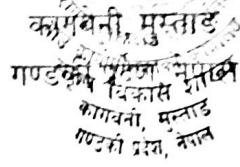 कागबेनी, मुस्ताङ
गण्डकी प्रदेश नेपाल
विकास शाखा
कागबेनी, मुस्ताङ
गण्डकी प्रदेश, नेपाल